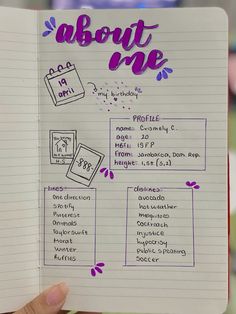 about
me
19
April
my birthday
PROFILE
name: Crismely C.
age: 20
MBTI: ISFP
From: Jarabacoa, Dom. Rep.
height: 1,57 (5,2)
888
likes
One direction
Spotify
Pinterest
Animals
Taylor swift
Morat
Winter
Ruffles
dislikes
avocado
hot weather
mosquitoes
Cockroach
injustice
hypocrisy
public speaking
Soccer